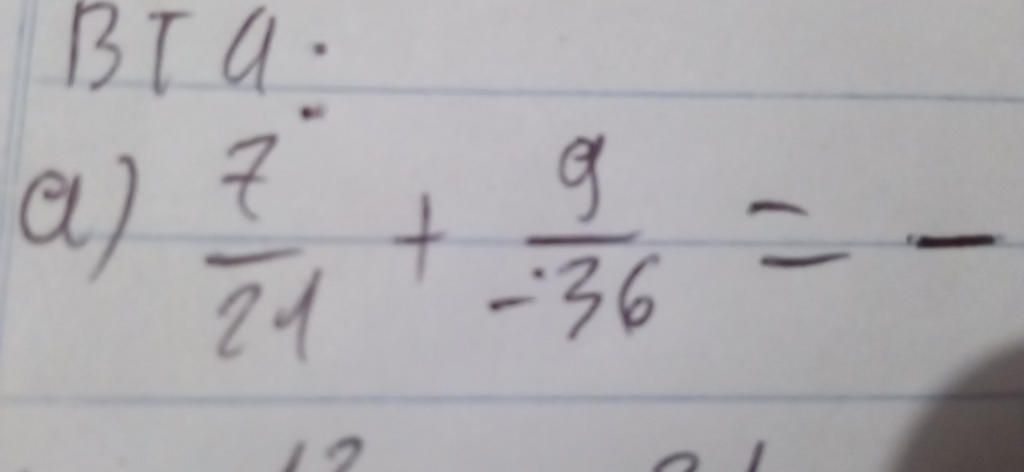 BT a:
a) 7/21 + 9/-36 = -